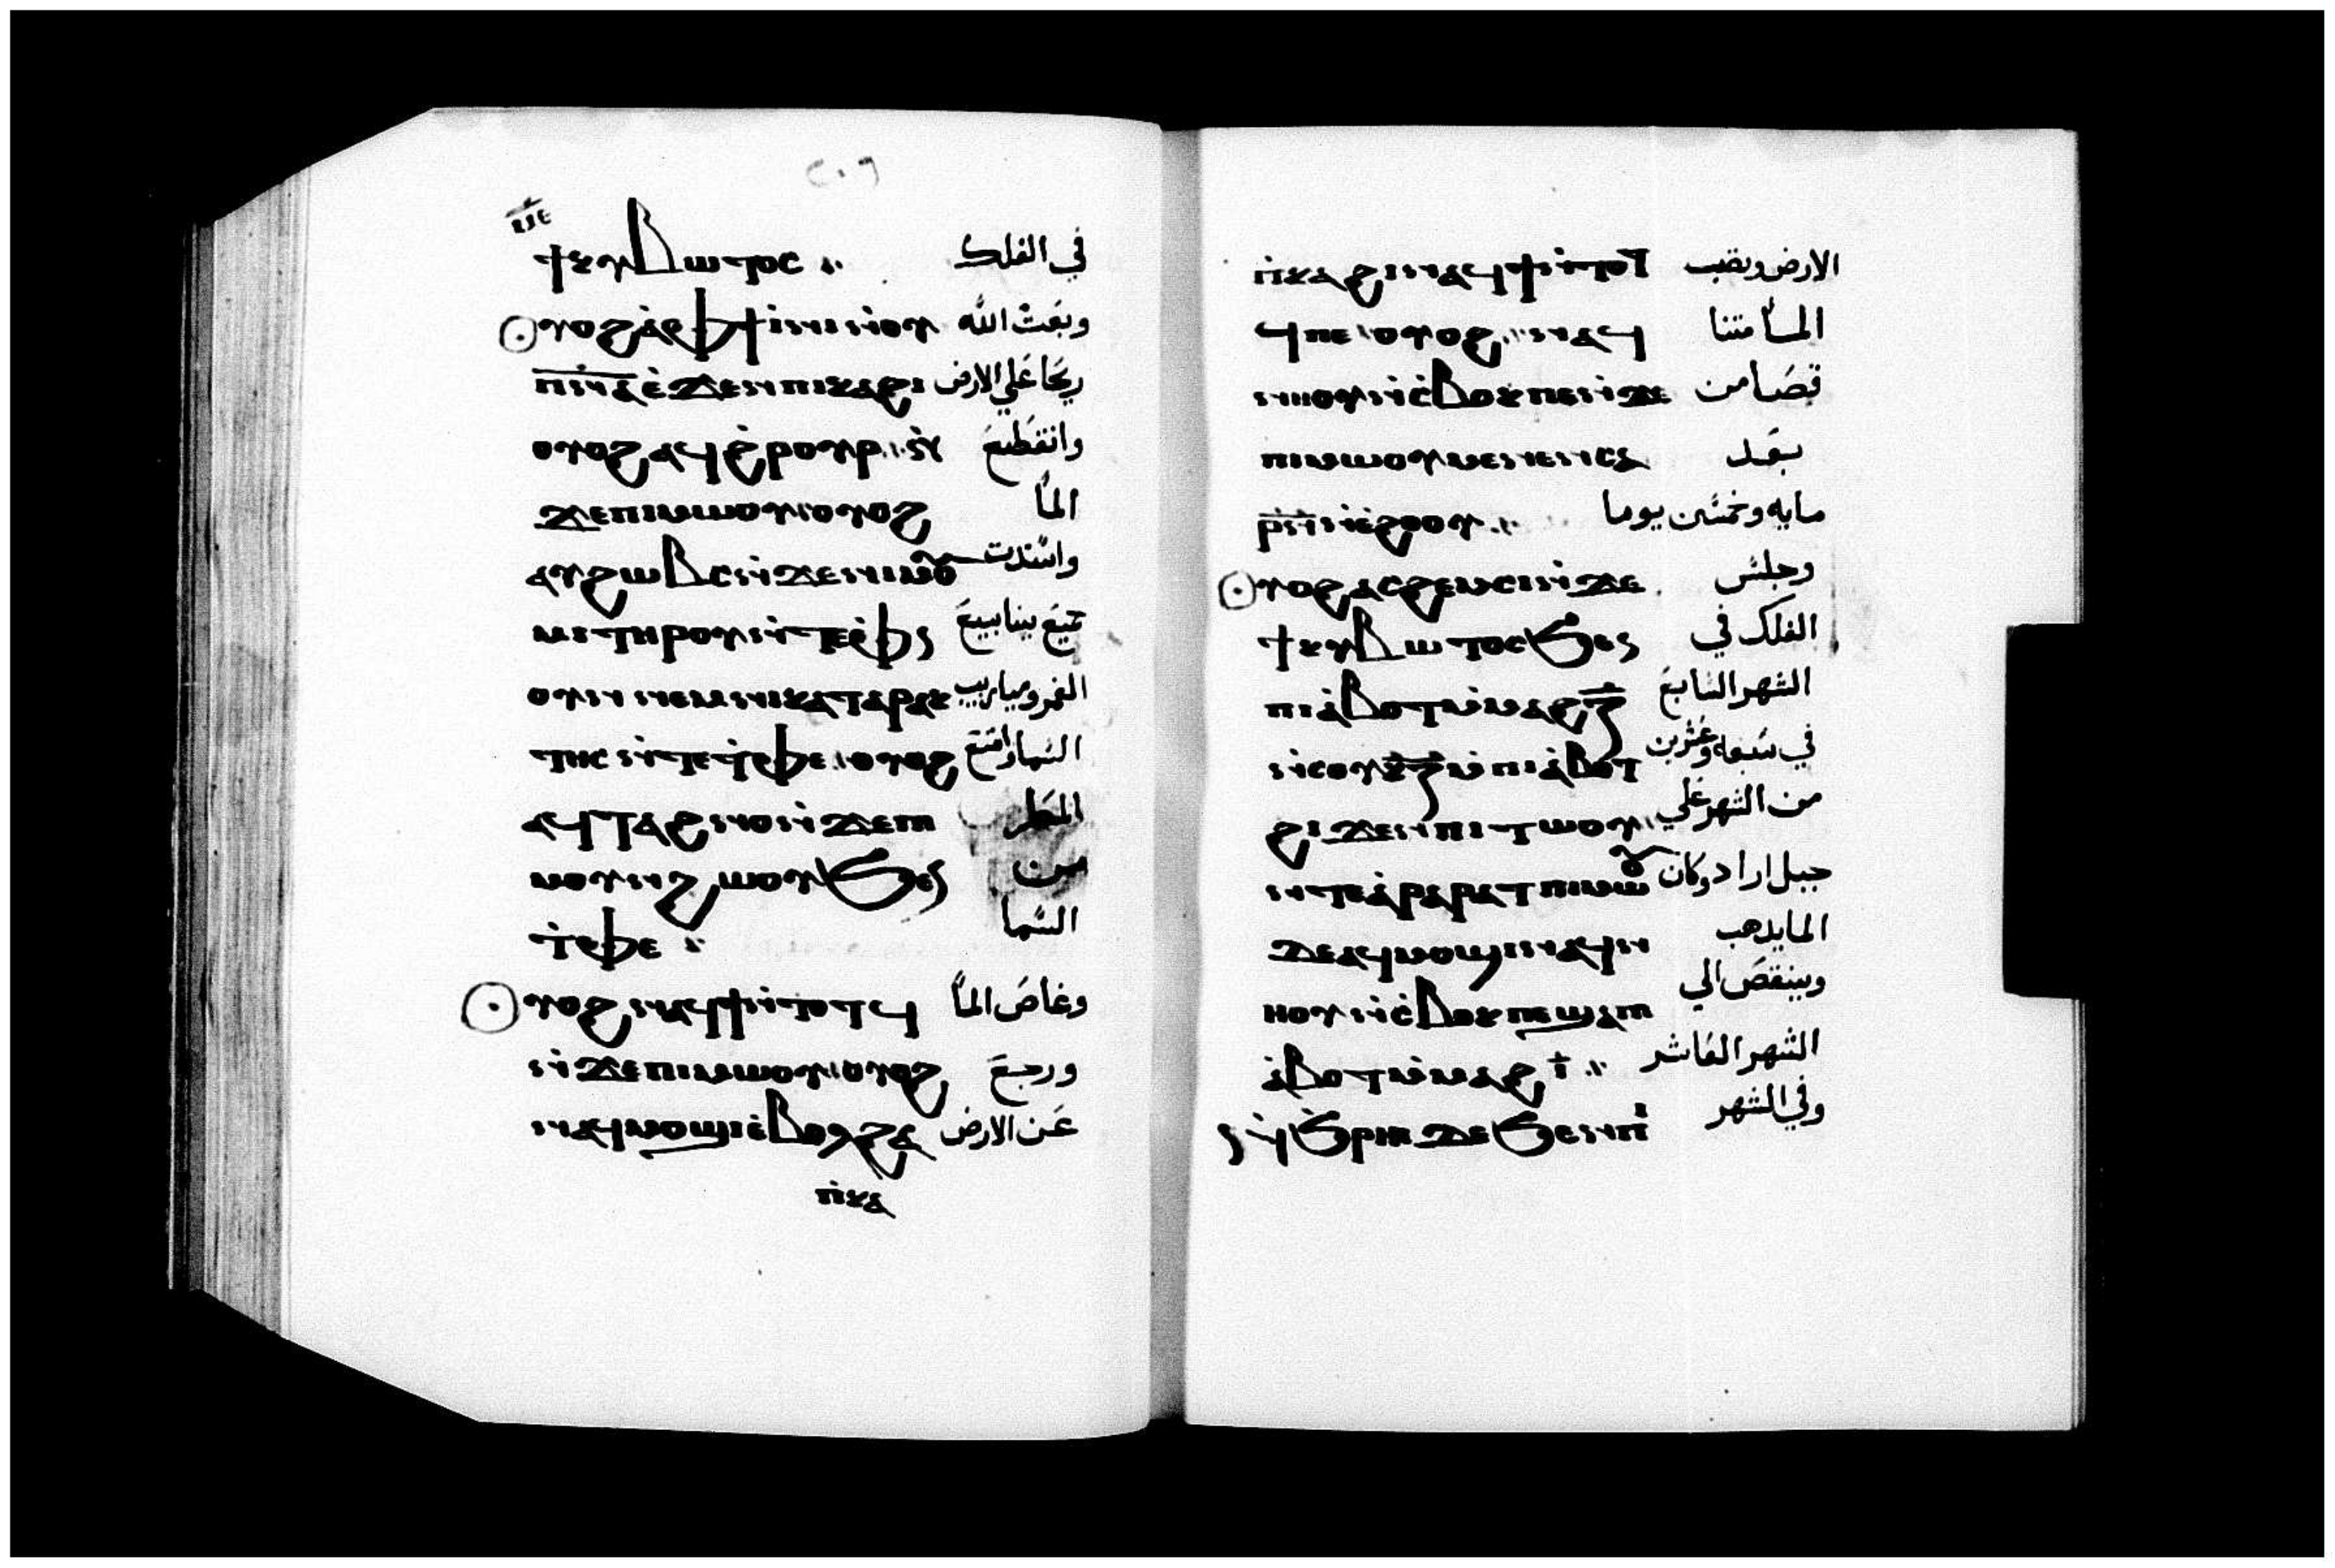 ⲓ̅ⲉ̅
ϯⲕⲩⲃⲱⲧⲟⲥ في الفلك
ⲟⲩⲟϩ ⲁ̀ⲫϯ ⲓ̀ⲛⲓ ⲛ̀ⲟⲩ وبعث الله
ⲡ̅ⲛ̅ⲁ̅ ⲉ̀ϫⲉⲛ ⲡⲓⲕⲁϩⲓ ريحا علي الارض
ⲟⲩⲟϩ ⲁϥϩ̀ⲣⲟⲩⲣ ⲛ̀ وانقطع
ϫⲉ ⲡⲓⲙⲱⲟⲩ ⲟⲩⲟϩ المآ
ⲁⲩϩⲱⲃⲥ ⲛ̀ϫⲉ ⲛⲓⲙⲟⲩ واستدت
ⲙⲓ ⲧⲏⲣⲟⲩ ⲛ̀ⲧⲉ ⲫ̀ⲛ جميع ينابيع
ⲟⲩⲛ ⲛⲉⲙ ⲛⲓⲕⲁⲧⲁⲣⲁⲕ الغمر وميازيب
ⲧⲏⲥ ⲛ̀ⲧⲉ ⲧ̀ⲫⲉ ⲟⲩⲟϩ السما وامتنع
ⲁϥⲧⲁϩⲛⲟ ⲛ̀ϫⲉ ⲡⲓ المطر
ⲙⲟⲩⲛϩⲱⲟⲩ ϧⲉⲛ من
ⲧ̀ⲫⲉ السما
ⲟⲩⲟϩ ⲛⲁϥϯ ⲛ̀ⲧⲟⲧϥ وغاص المآ
ⲛ̀ϫⲉ ⲡⲓⲙⲱⲟⲩ ⲟⲩⲟϩ ورجع
ⲛⲁϥⲙⲟϣⲓ ⲉ̀ⲃⲟⲗ ϩⲁ عن الارض
ⲡ̀ⲕⲁ
ⲡ̀ⲕⲁϩⲓ ⲛⲁϥϯ ⲛ̀ⲧⲟⲧ الارض ونضب
ϥⲡⲉ ⲟⲩⲟϩ ⲛⲁϥ المآ متنا
ⲛⲏⲟⲩ ⲛ̀ⲉ̀ⲃⲟⲕ ⲡⲉ ⲛ̀ϫⲉ قصا من
ⲡⲓⲙⲱⲟⲩ ⲙⲉⲛⲉⲛⲥⲁ بعد
ⲣ̅ⲛ̅ ⲛ̀ⲉ̀ϩⲟⲟⲩ مايه وخمسين يوما
ⲟⲩⲟϩ ⲁⲥϩⲉⲙⲥⲓ ⲛ̀ϫⲉ وجلس
ϯⲕⲩⲃⲱⲧⲟⲥ ϧⲉⲛ الفلك في
ⲡⲓⲁ̀ⲃⲟⲧ ⲙ̀ⲙⲁϩ ⲍ̅ الشهر السابع
ⲛ̀ⲥⲟⲩ ⲕ̅ⲍ̅ ⲙ̀ⲡⲓⲁ̀ⲃⲟⲧ في سبعه وعشرين
ϩⲓϫⲉⲛ ⲡⲓⲧⲱⲟⲩ من الشهر علي
ⲛ̀ⲧⲉ ⲁ̀ⲣⲁⲣⲁⲧ ⲡⲓⲙⲱⲟⲩ جبل اراراد وكان
ϫⲉ ⲁϥⲙⲟϣⲓ ⲛⲁϥⲛ المايدهب
ⲏⲟⲩ ⲛ̀ⲉ̀ⲃⲟⲕ ⲡⲉ ϣⲁ ⲡⲓ وبينقص الي
ⲁ̀ⲃⲟⲧ ⲙ̀ⲙⲁϩ ⲓ̅ الشهر العاشر
ⲛ̀ϩ̀ⲣⲏⲓ ϫⲉ ϧⲉⲛ ⲡⲓ وفي الشهر